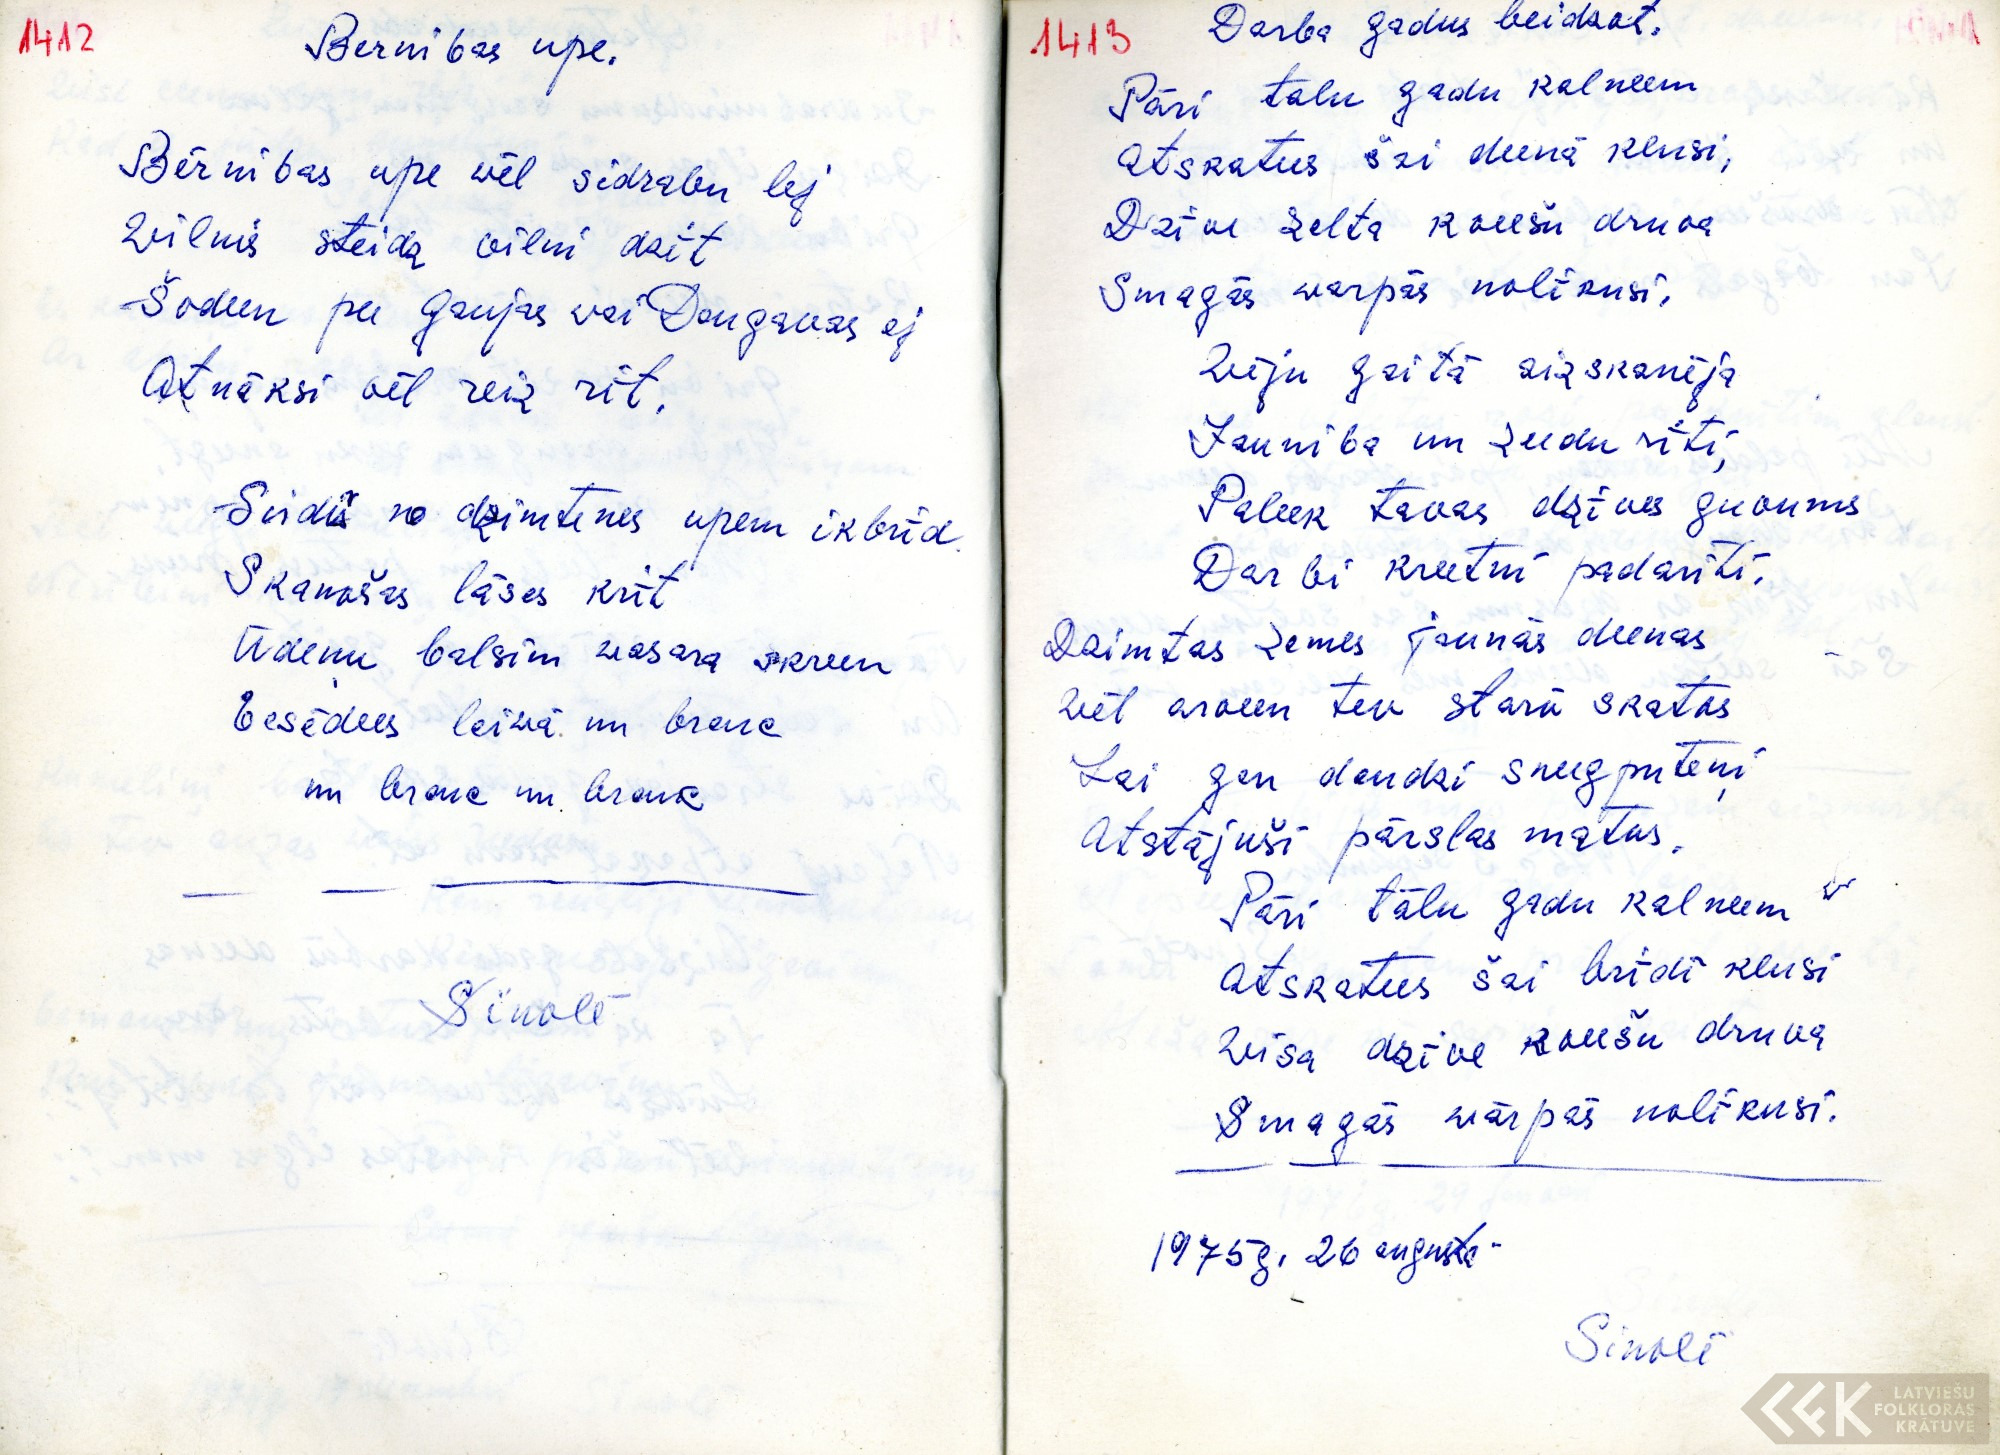 1412
Bernibas upe.
Bērnibas upe wēl sidrabu lej
Wilnis steidz vilni dzīt
Šodeen pee Gaujas vai Daugavas ej
Atnāksi vēl reiz rīt.
Sirdīs no dzimtenes upem ikbrīd
Skanošas lāses krīt
Ūdeņu balsīm vasara skreen
Eesēdees laivā un brauc
un brauc un brauc
Sinolē
1413
Darba gadus beidzot.
Pāri talu gadu kalneem
Atskatees šai deenā klusi,
Dzīve zelta kveešu druva
Smagās vārpās nolīkusi.
Wēju gaitā aizskanēja
Jauniba un zeedu rīti,
Paleek tavas dzīves guvums
Darbi kreetni padarīti.
Dzimtas zemes jaunās deenas
Wēl arveen tev starū skatos
Lai gan daudzi sneegputeņi
Atstājuši pārslas matos.
Pāri tālu gadu kalneem
Atskatees šai brīdī klusi
Wisa dzīve kveešu druva
Smagās vārpās nolīkusi.
1975g. 26 augusta-
Sinolē
LATVIEŠU
FOLKLORAS
KRĀTUVE